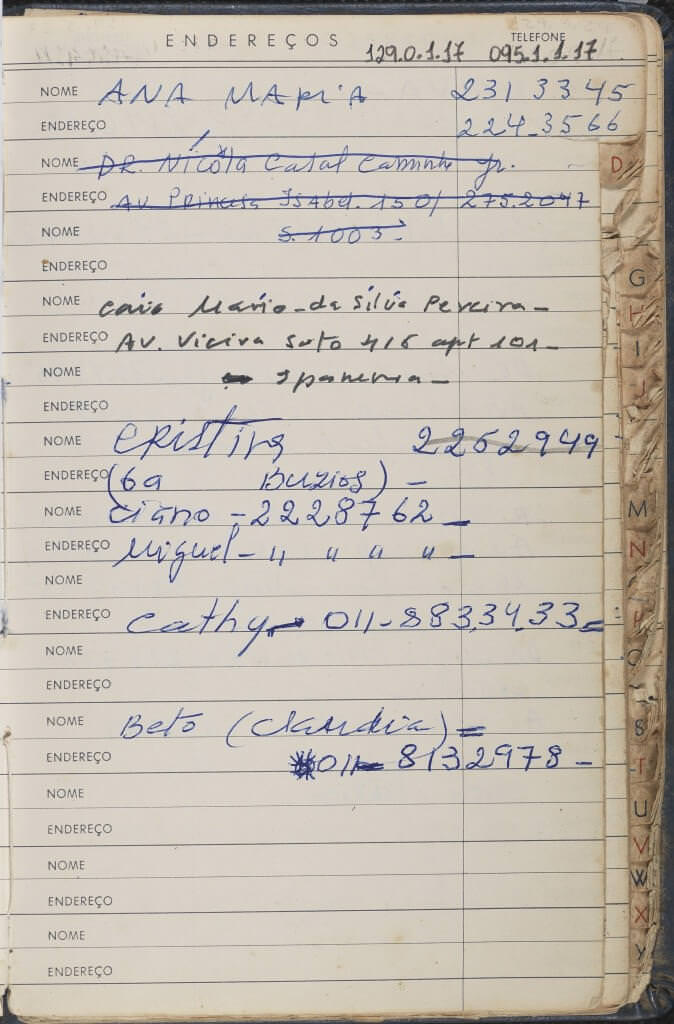 ENDEREÇOS TELEFONE
129.0.1.17 095.1.1.17
NOME ANA MARIA 231 3345
ENDEREÇO 224_3566
NOME DR. Nicola Casal Caminha Jr.
ENDEREÇO Av. Princesa Isabel. 150/ 275.2047
NOME S. 1003.
ENDEREÇO
NOME Caio Mário da Silva Pereira
ENDEREÇO Av. Vieira Souto 416 apt 101
NOME Ipanema
ENDEREÇO
NOME CRISTINA 2252949
ENDEREÇO (6a BUZIOS) -
NOME 2228762
ENDEREÇO Miguel - " " " " -
NOME
ENDEREÇO Cathy - 011-883.34.33 =
NOME
ENDEREÇO
NOME Beto (Claudia) =
ENDEREÇO 011- 8132978 -
NOME
ENDEREÇO
NOME
ENDEREÇO
NOME
ENDEREÇO
D
G
I
M
N
S
T
U
V
W
X
Y